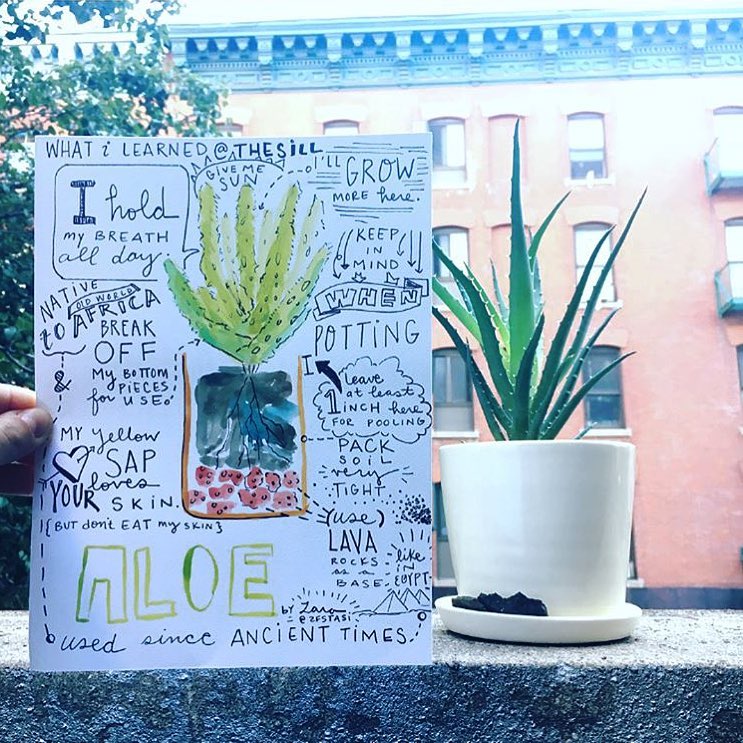 WHAT i LEARNED @THESill
I hold
my BREATH
all day.
GIVE ME
SUN
I'LL GROW
MORE here.
KEEP
IN
MIND
WHEN
POTTING
NATIVE
to OLD WORLD
AFRICA
BREAK
OFF
My BOTTOM
PIECES
for USE.
&
I
Leave
at least
1 INCH here
FOR POOLING
PACK
SOIL
very
TIGHT.
(use)
LAVA
ROCKS
as a
BASE.
like
in
EGYPT
MY yellow
SAP
loves
YOUR SKIN.
{BUT don't EAT my SKIN}
ALOE
by Lara
@ZFSTASI
used since ANCIENT TIMES.